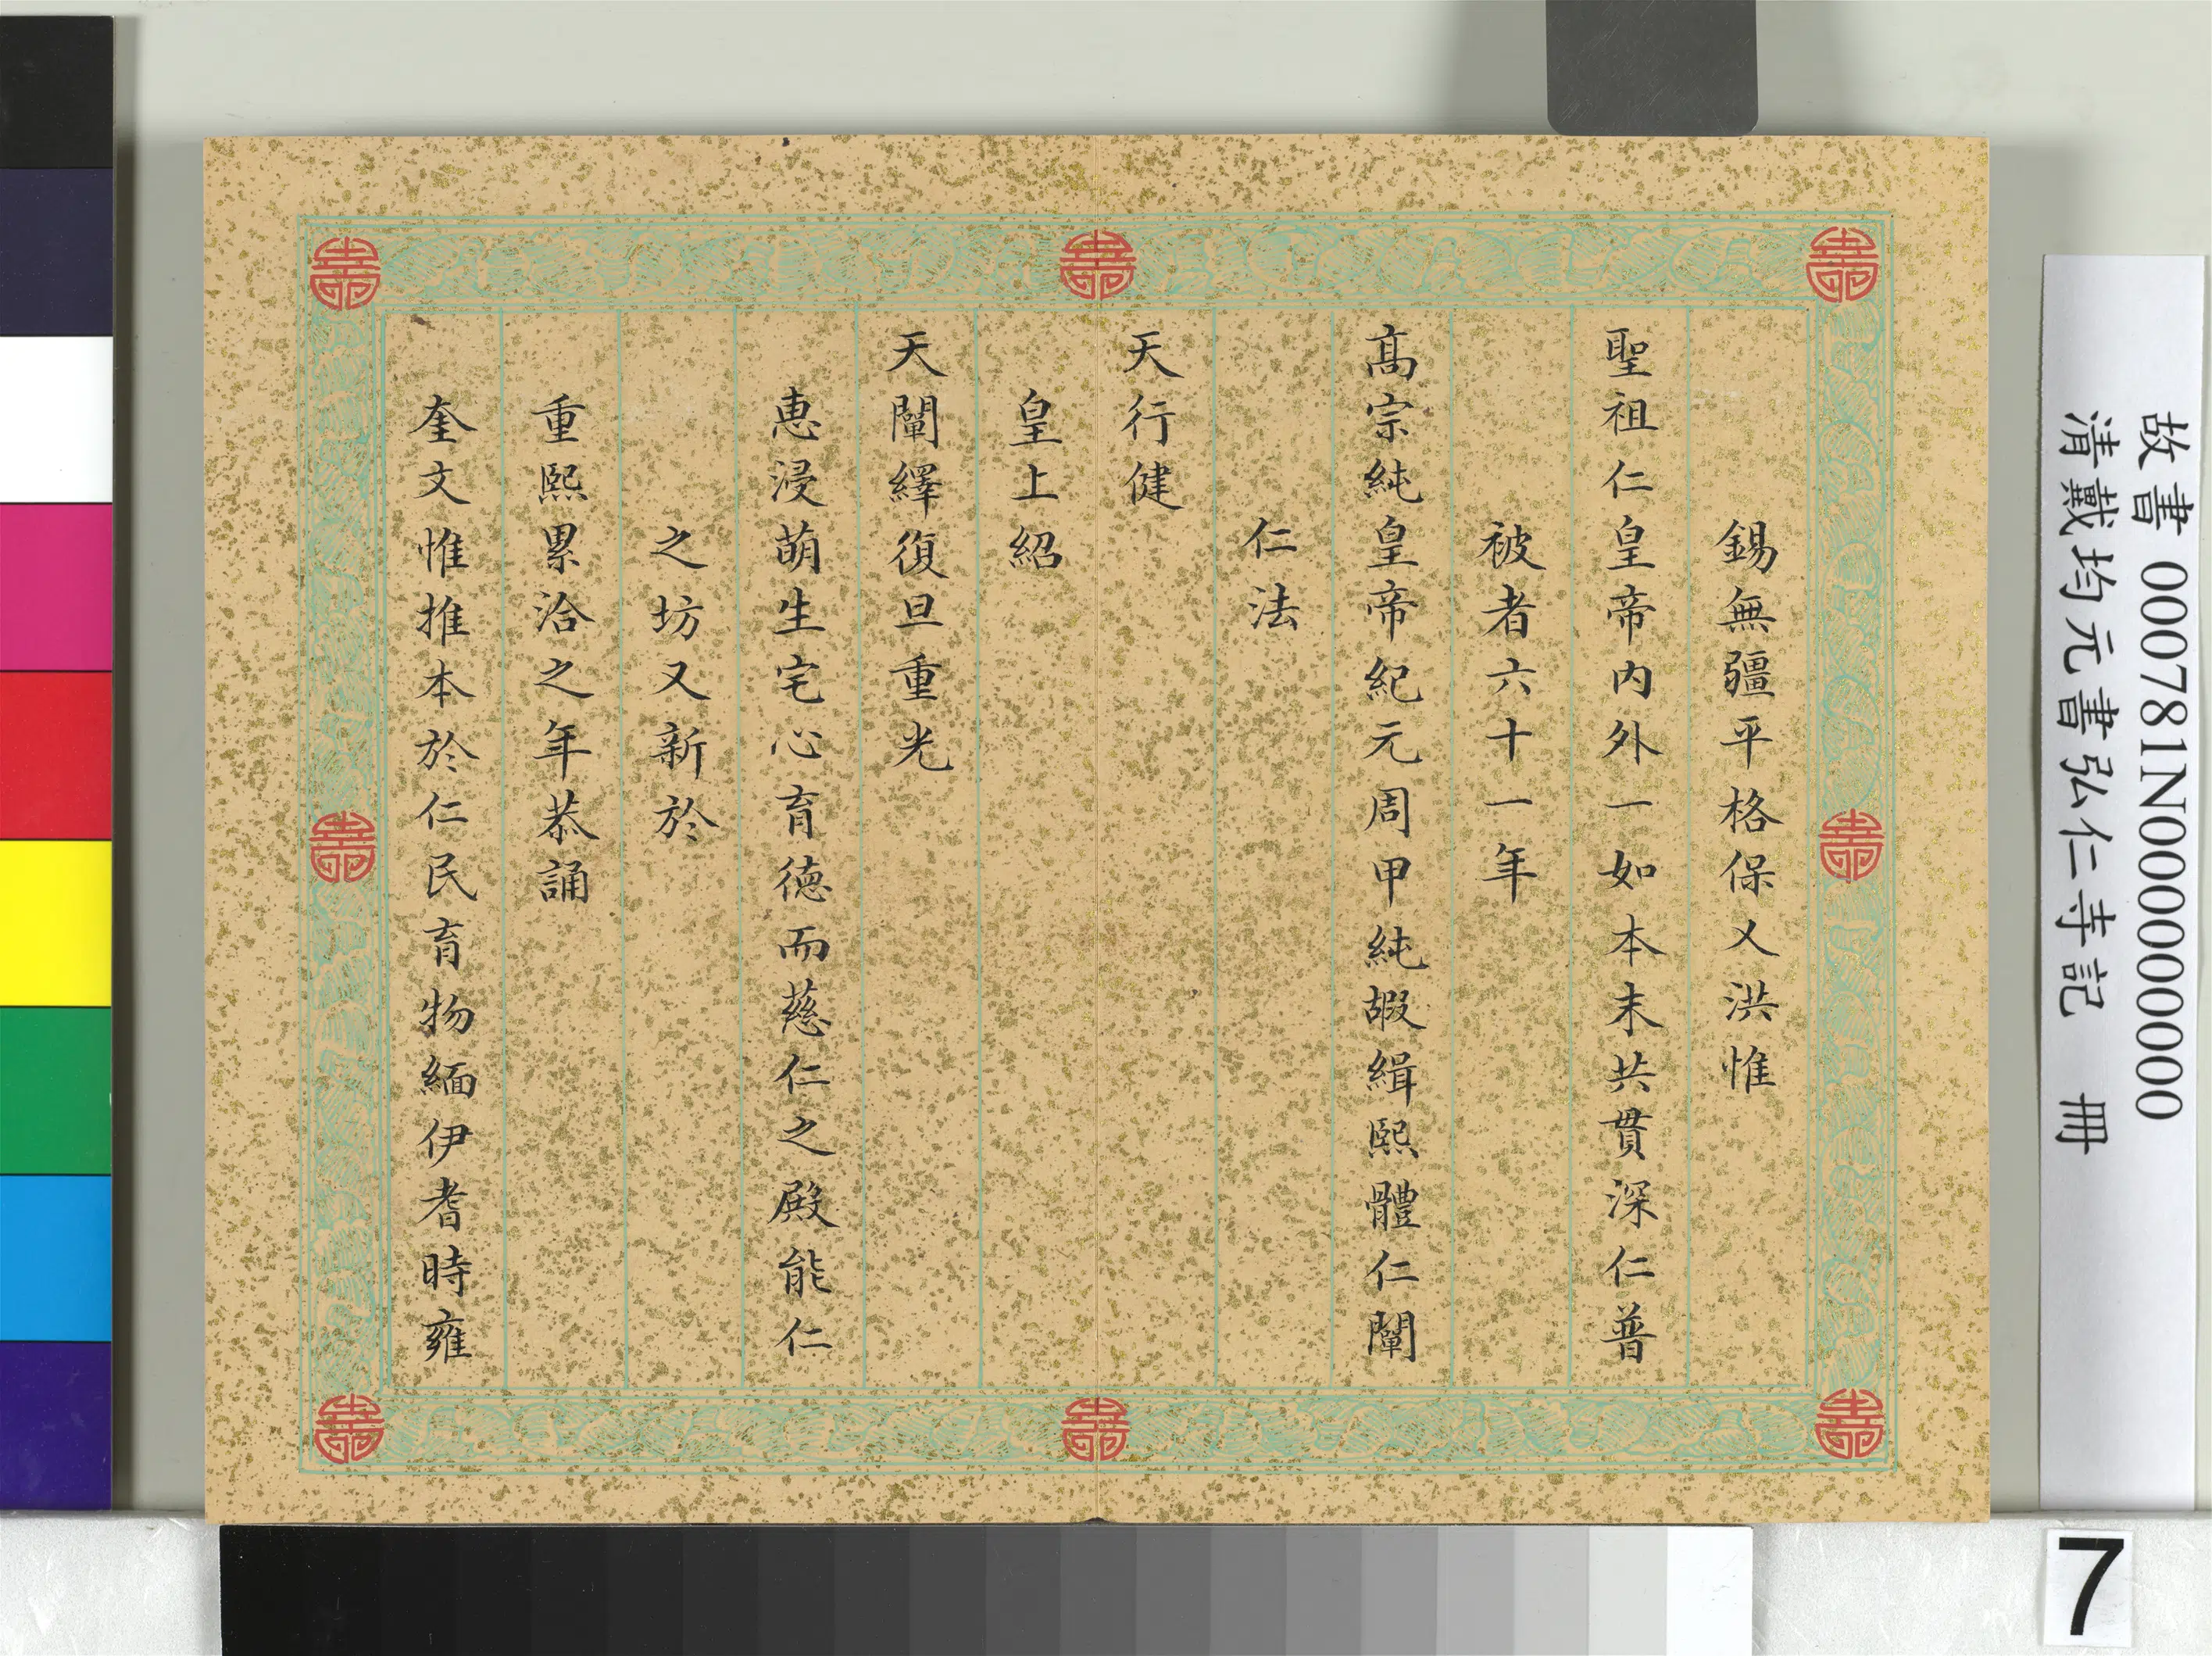 錫無疆平格保乂洪惟
聖祖仁皇帝内外一如本末共貫深仁普
被者六十一年
髙宗純皇帝紀元周甲純嘏緝熙體仁闡
仁法
天行健
皇上紹
天闡繹復旦重光
惠浸萌生宅心育德而慈仁之殿能仁
之坊又新於
重熙累洽之年恭誦
奎文惟推本於仁民育物緬伊耆時雍
故書 000781N000000000
清戴均元書弘仁寺記 冊
7